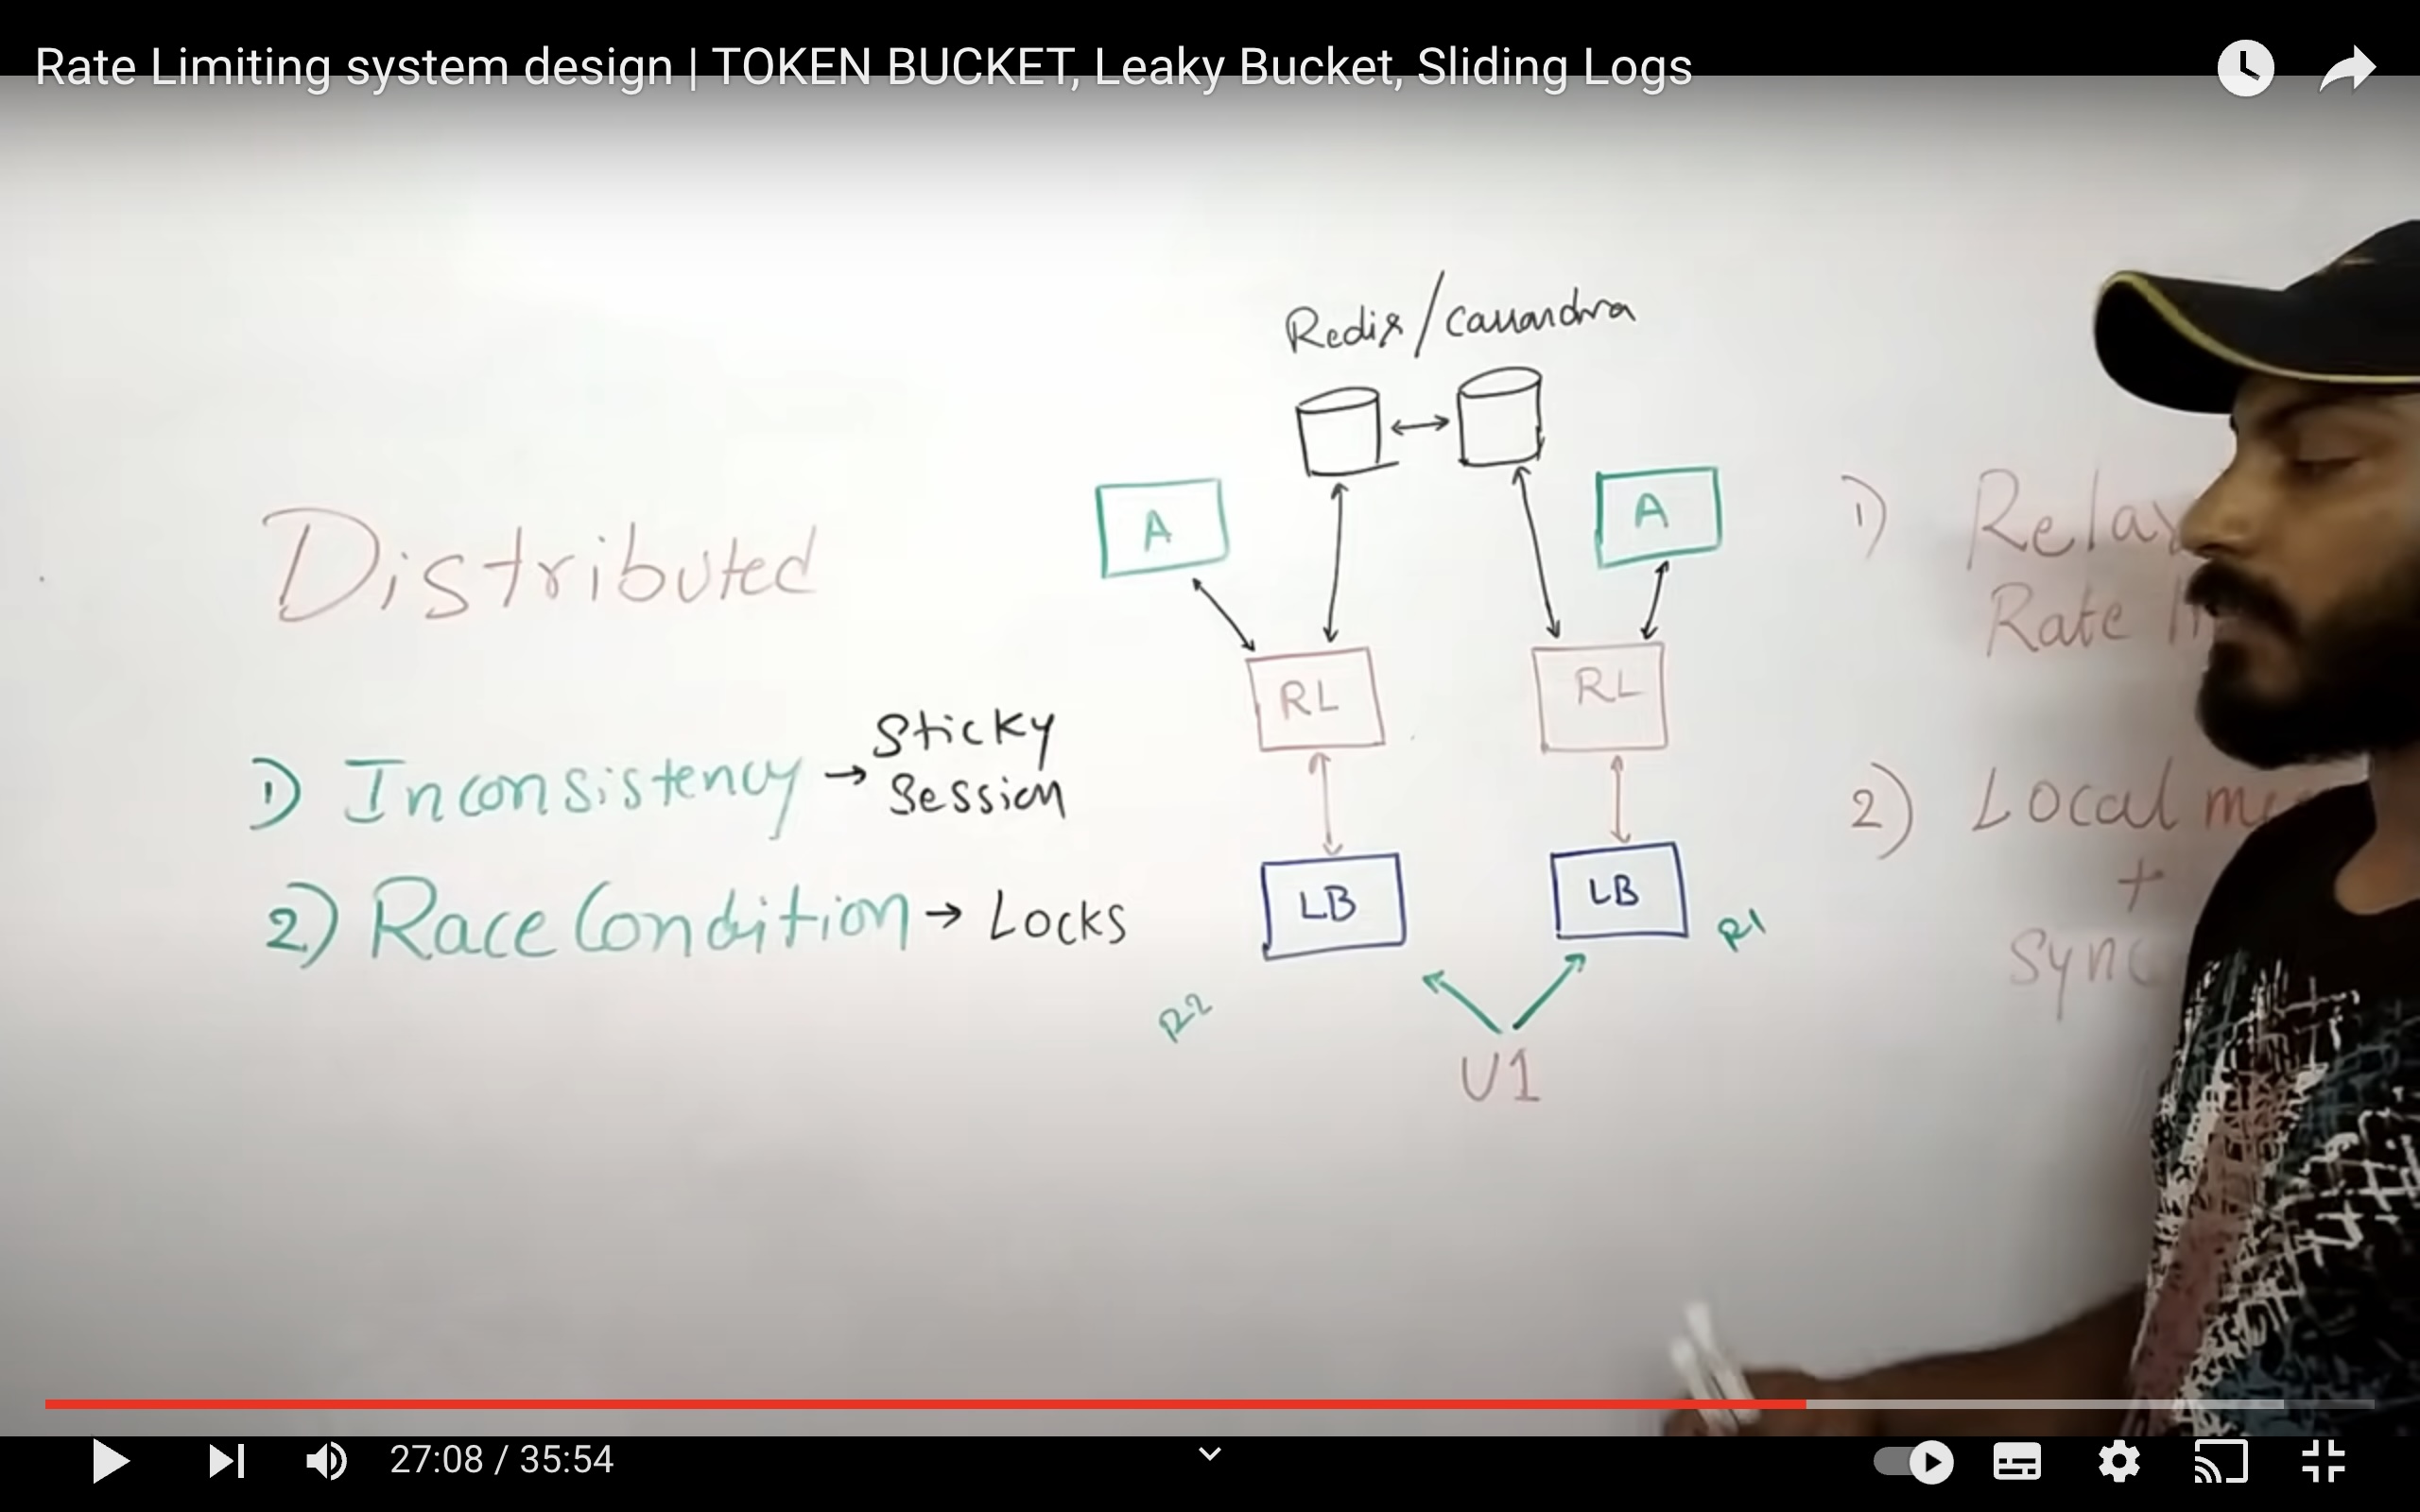 Rate Limiting system design | TOKEN BUCKET, Leaky Bucket, Sliding Logs
Distributed
1) Inconsistency → Sticky Session
2) Race Condition → Locks
Redis/cassandra
A
A
RL
RL
LB
LB
R1
R2
U1
1)
Rate
2) Local
+
Sync
27:08 / 35:54